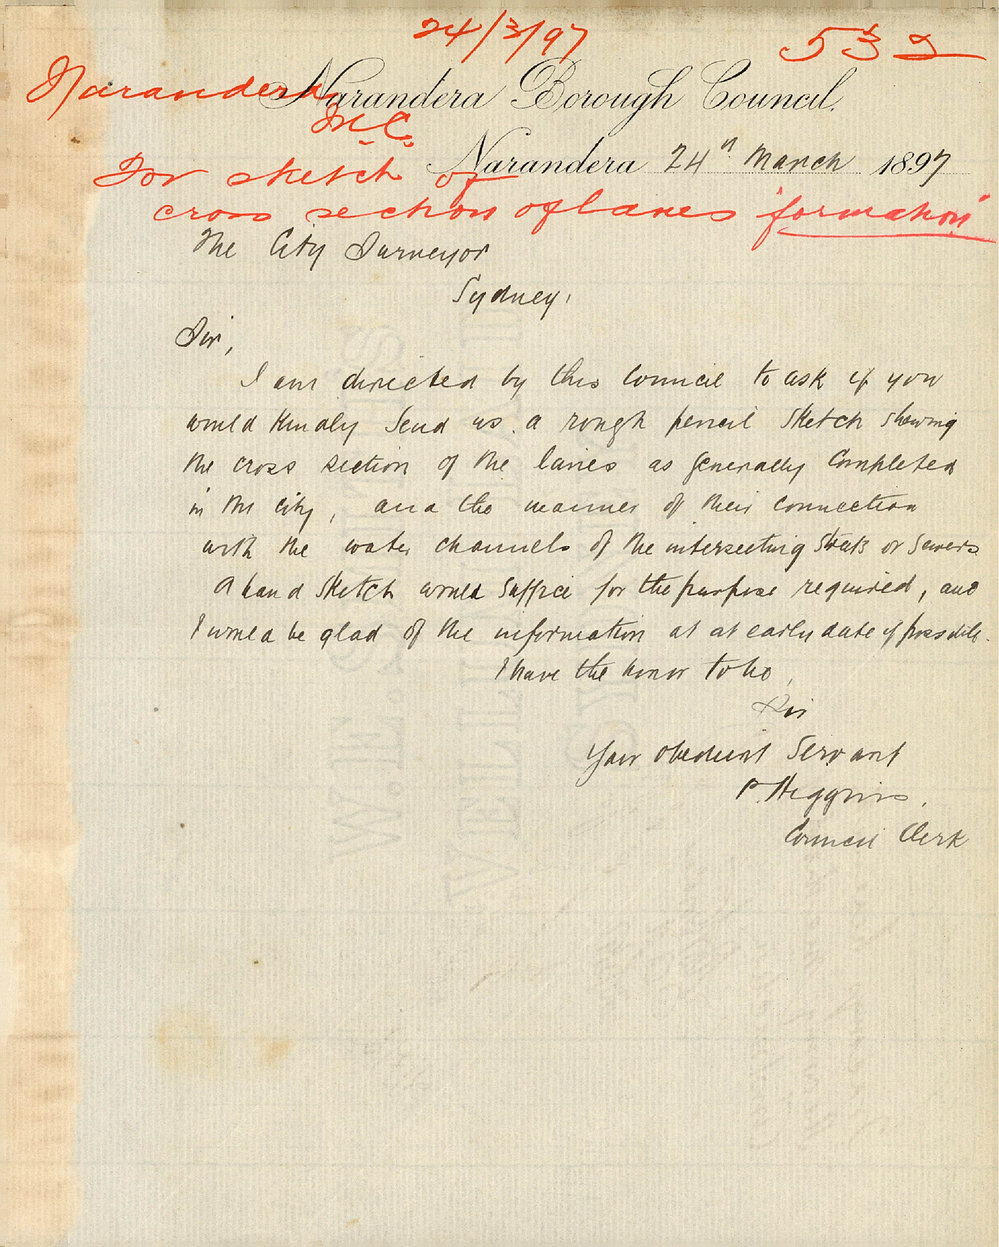 24/3/97
532
Narandera
M.C.
For sketch of
cross section of lanes 'formation'
Narandera Borough Council.
Narandera 24th March 1897
The City Surveyor
Sydney,
Sir,
I am directed by this Council to ask if you
would kindly send us a rough pencil sketch shewing
the cross section of the lanes as generally completed
in the city, and the manner of their connection
with the water channels of the intersecting streets or sewers
A hand sketch would suffice for the purpose required, and
I would be glad of the information at at early date if possible.
I have the honor to be,
Sir
Your obedient Servant
P. Higgins,
Council Clerk